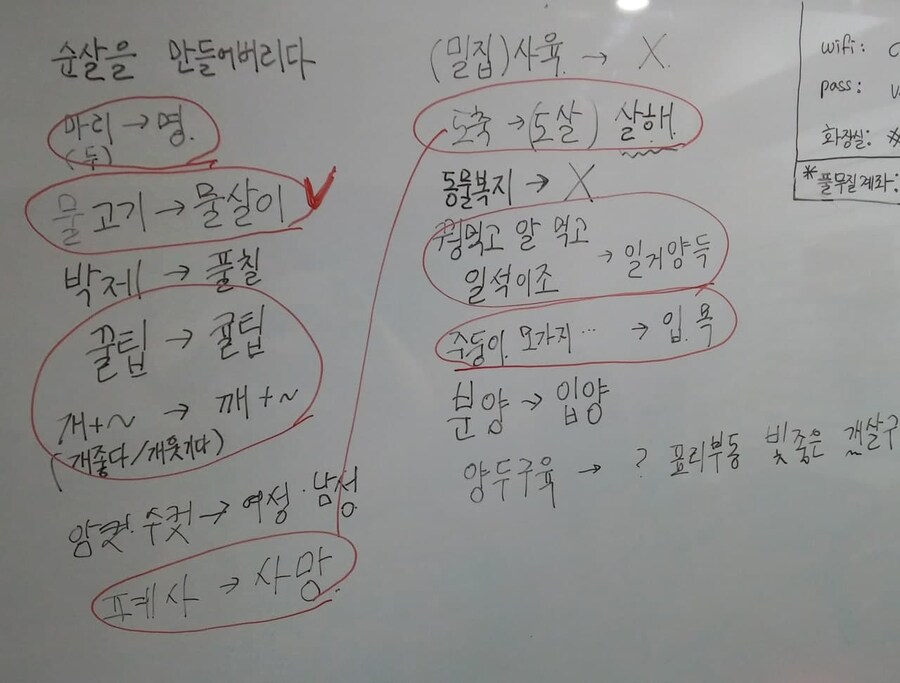 순살을 만들어버리다
마리 → 명.
(두)
물고기 → 물살이
박제 → 풀칠
꿀팁 → 귤팁
개+~ → 깨+~
(개좋다/개웃기다)
암컷·수컷 → 여성·남성
폐사 → 사망
(밀집)사육 → X
도축 → (도살) 살해.
동물복지 → X
꿩먹고 알 먹고
일석이조 → 일거양득
주둥이, 모가지… → 입. 목
분양 → 입양
양두구육 → ? 표리부동 빛좋은 개살구
wifi:
pass:
화장실:
*풀무질계좌: